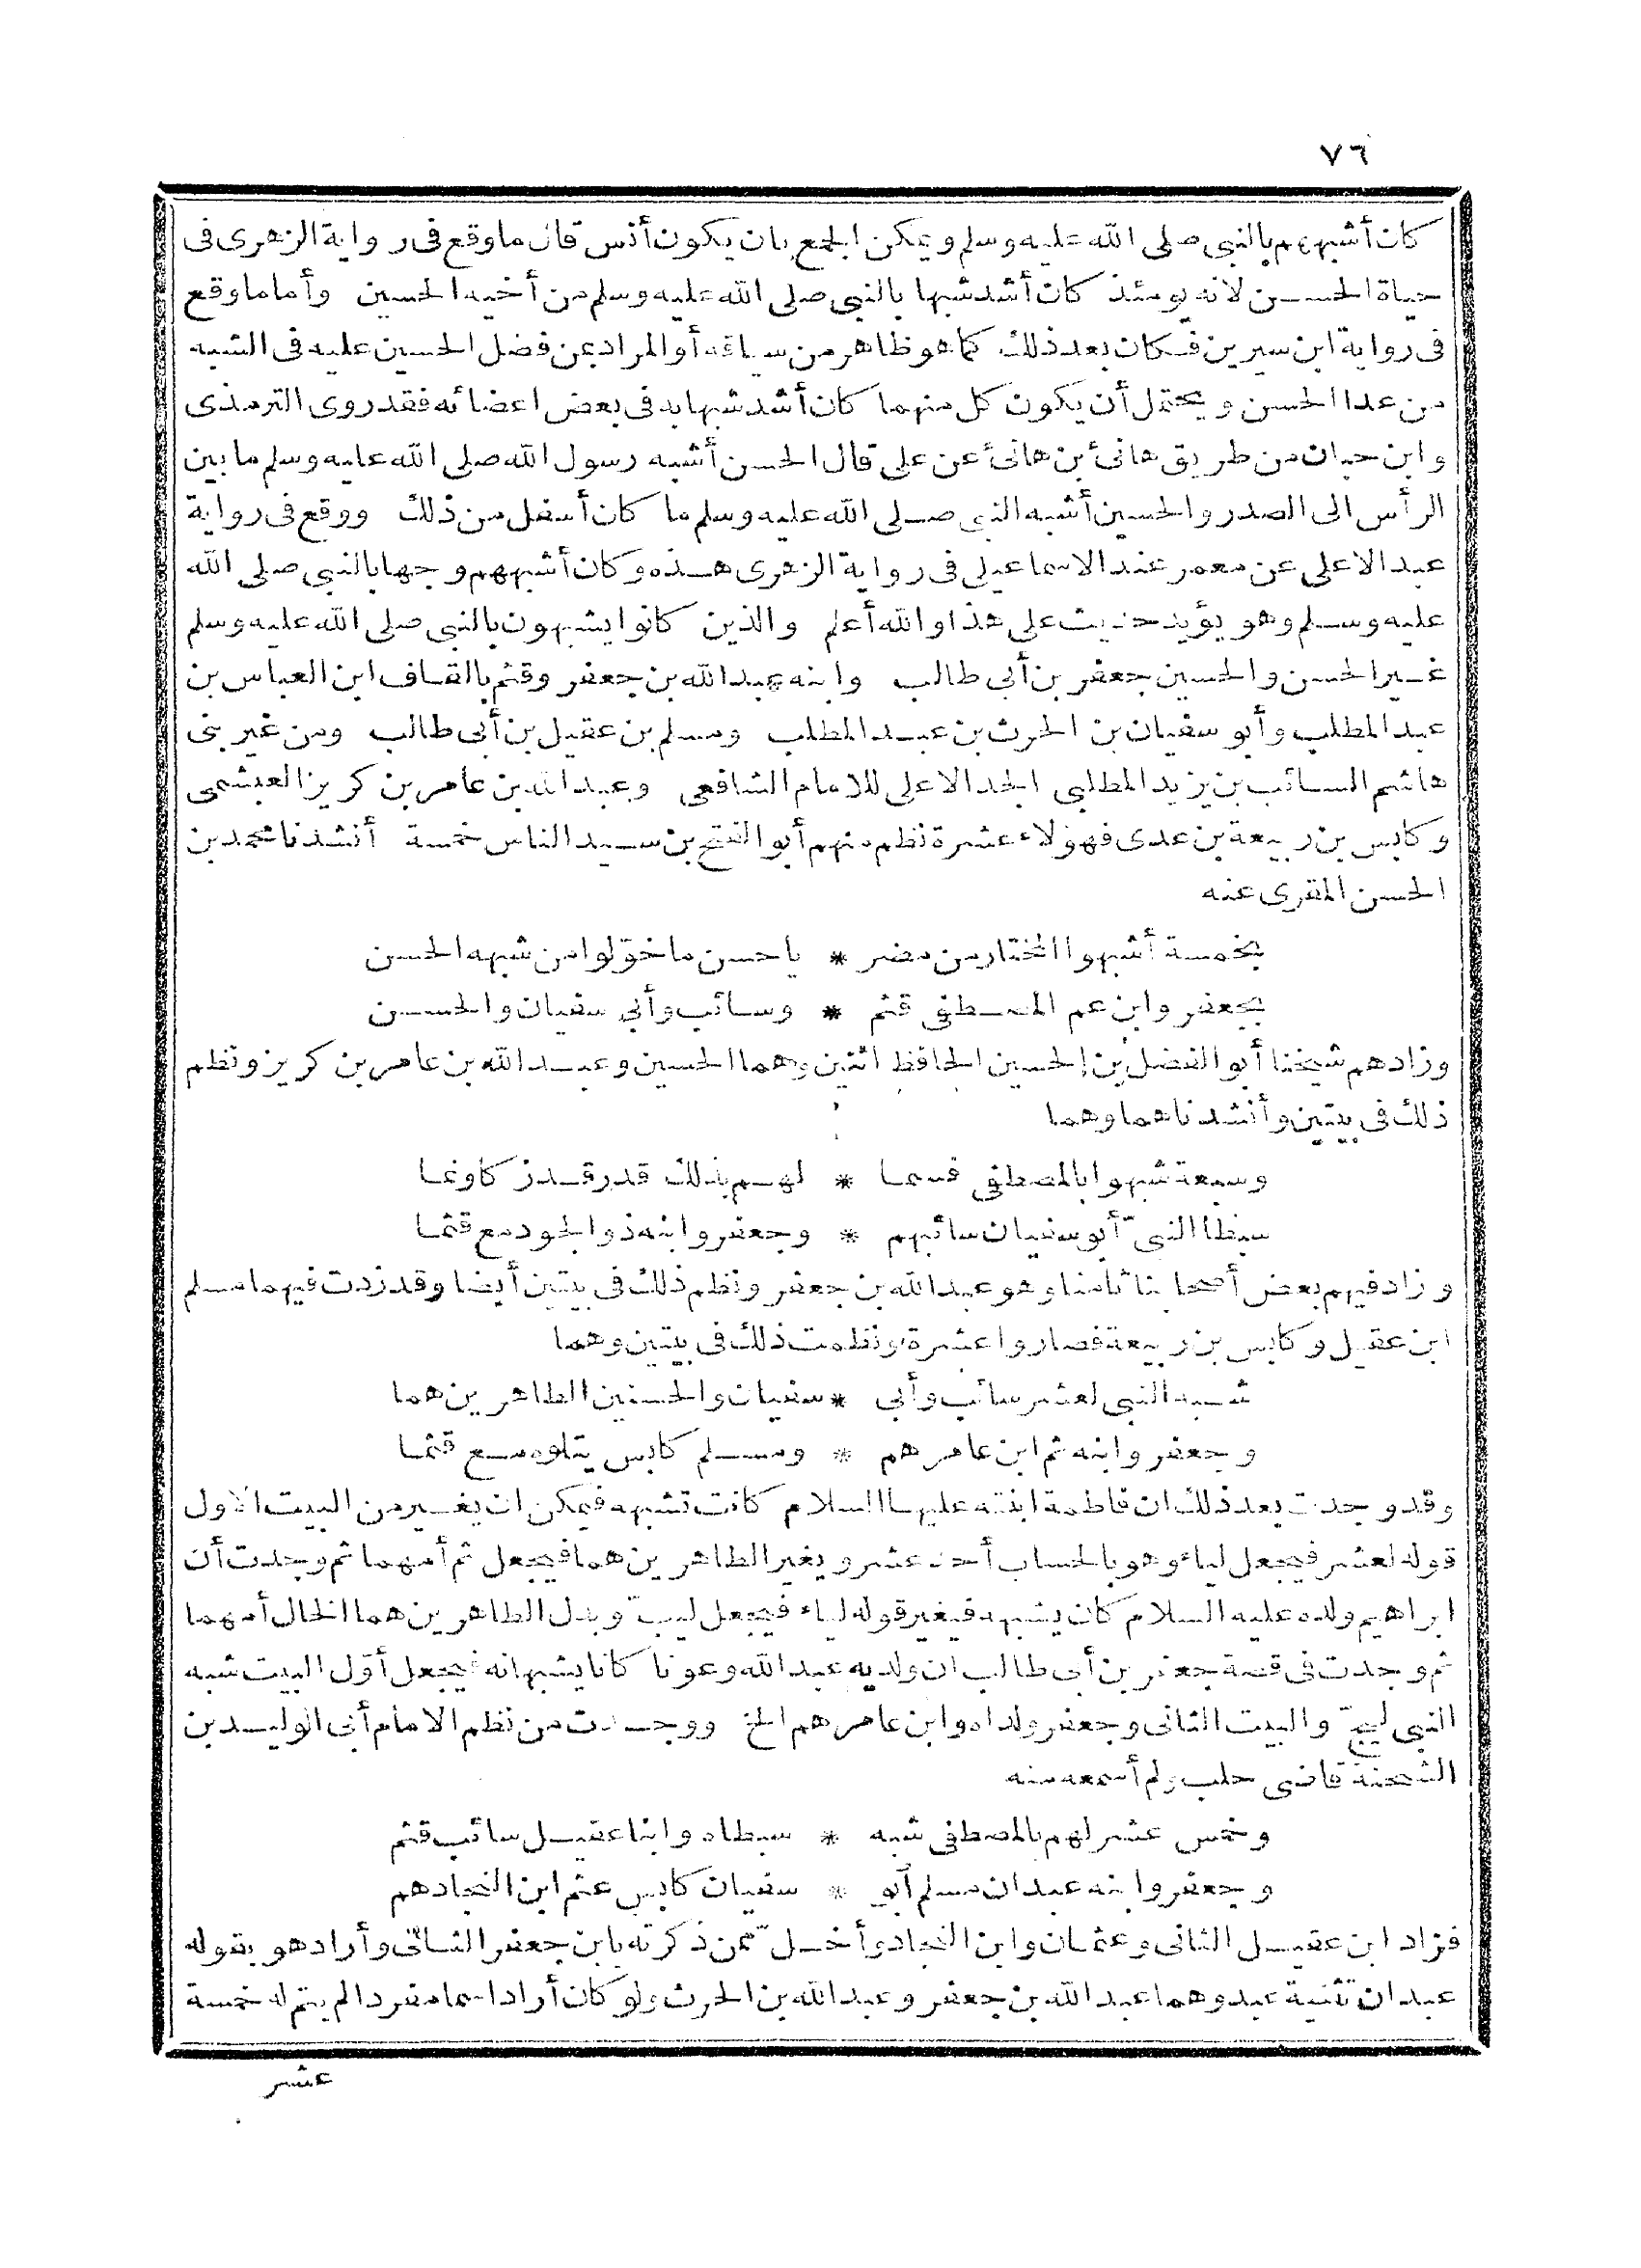 ٧٦
كان أشبههم بالنبي صلى الله عليه وسلم ويمكن الجمع بان يكون أنس قال ما وقع فى رواية الزهرى فى
حياة الحسن لانه يومئذ كان أشد شبها بالنبى صلى الله عليه وسلم من أخيه الحسين وأما ما وقع
فى رواية ابن سيرين فكان بعد ذلك كما هو ظاهر من سياقه أو المراد بمن فضل الحسين عليه فى الشبه
من عدا الحسن ويحتمل أن يكون كل منهما كان أشد شبها به فى بعض اعضائه فقد روى الترمذى
وابن حبان من طريق هانئ بن هانئ عن على قال الحسن أشبه رسول الله صلى الله عليه وسلم ما بين
الرأس الى الصدر والحسين أشبه النبى صلى الله عليه وسلم ما كان أسفل من ذلك ووقع فى رواية
عبد الاعلى عن معمر عند الاسماعيلى فى رواية الزهرى هذه وكان أشبههم وجها بالنبى صلى الله
عليه وسلم وهو يؤيد حديث على هذا والله أعلم والذين كانوا يشبهون بالنبى صلى الله عليه وسلم
غير الحسن والحسين جعفر بن أبى طالب وابنه عبد الله بن جعفر وقثم بالقاف ابن العباس بن
عبد المطلب وأبو سفيان بن الحرث بن عبد المطلب ومسلم بن عقيل بن أبى طالب ومن غير بنى
هاشم السائب بن يزيد المطلبى الجد الاعلى للامام الشافعى وعبد الله بن عامر بن كريز العبشمى
وكابس بن ربيعة بن عدى فهؤلاء عشرة نظم منهم أبو الفتح بن سيد الناس خمسة أنشدنا محمد بن
الحسن المقرى عنه
بخمسة أشبهوا المختار من مضر * يا حسن ما خوّلوا من شبهه الحسن
بجعفر وابن عم المصطفى قثم * وسائب وأبى سفيان والحسن
وزادهم شيخنا أبو الفضل بن الحسين الحافظ اثنين وهما الحسين وعبد الله بن عامر بن كريز ونظم
ذلك فى بيتين وأنشدناهما وهما
وسبعة شبهوا بالمصطفى فسما * لهم بذلك قدر قد زكا ونما
سبطا النبىّ أبو سفيان سائبهم * وجعفر وابنه ذو الجود مع قثما
وزاد فيهم بعض أصحابنا ثامنا وهو عبد الله بن جعفر ونظم ذلك فى بيتين أيضا وقد زدت فيهما مسلم
ابن عقيل وكابس بن ربيعة فصاروا عشرة ونظمت ذلك فى بيتين وهما
شبه النبى لعشر سائب وأبى * سفيان والحسنين الطاهرين هما
وجعفر وابنه ثم ابن عامرهم * ومسلم كابس يتلوه مع قثما
وقد وجدت بعد ذلك ان فاطمة ابنته عليها السلام كانت تشبهه فيمكن ان يغير من البيت الاول
قوله لعشر فيجعل لياء وهو بالحساب أحد عشر ويغير الطاهرين هما فيجعل ثم أمهما ثم وجدت أن
ابراهيم ولده عليه السلام كان يشبهه فيغير قوله لياء فيجعل ليبّ وبدل الطاهرين هما الخال أمهما
ثم وجدت فى قصة جعفر بن أبى طالب ان ولديه عبد الله وعونا كانا يشبهانه فيجعل أوّل البيت شبه
النبى ليجّ والبيت الثانى وجعفر ولداه وابن عامرهم الخ ووجدت من نظم الامام أبى الوليد بن
الشحنة قاضى حلب ولم أسمعه منه
وخمس عشر لهم بالمصطفى شبه * سبطاه وابنا عقيل سائب قثم
وجعفر وابنه عبدان مسلم أبو * سفيان كابس عثم ابن النجاد هم
فزاد ابن عقيل الثانى وعثمان وابن النجاد وأخل ممن ذكرته بابن جعفر الثانى وأراد هو بقوله
عبدان تثنية عبد وهما عبد الله بن جعفر وعبد الله بن الحرث ولو كان أراد اسما مفردا لم يتم له خمسة
عشر